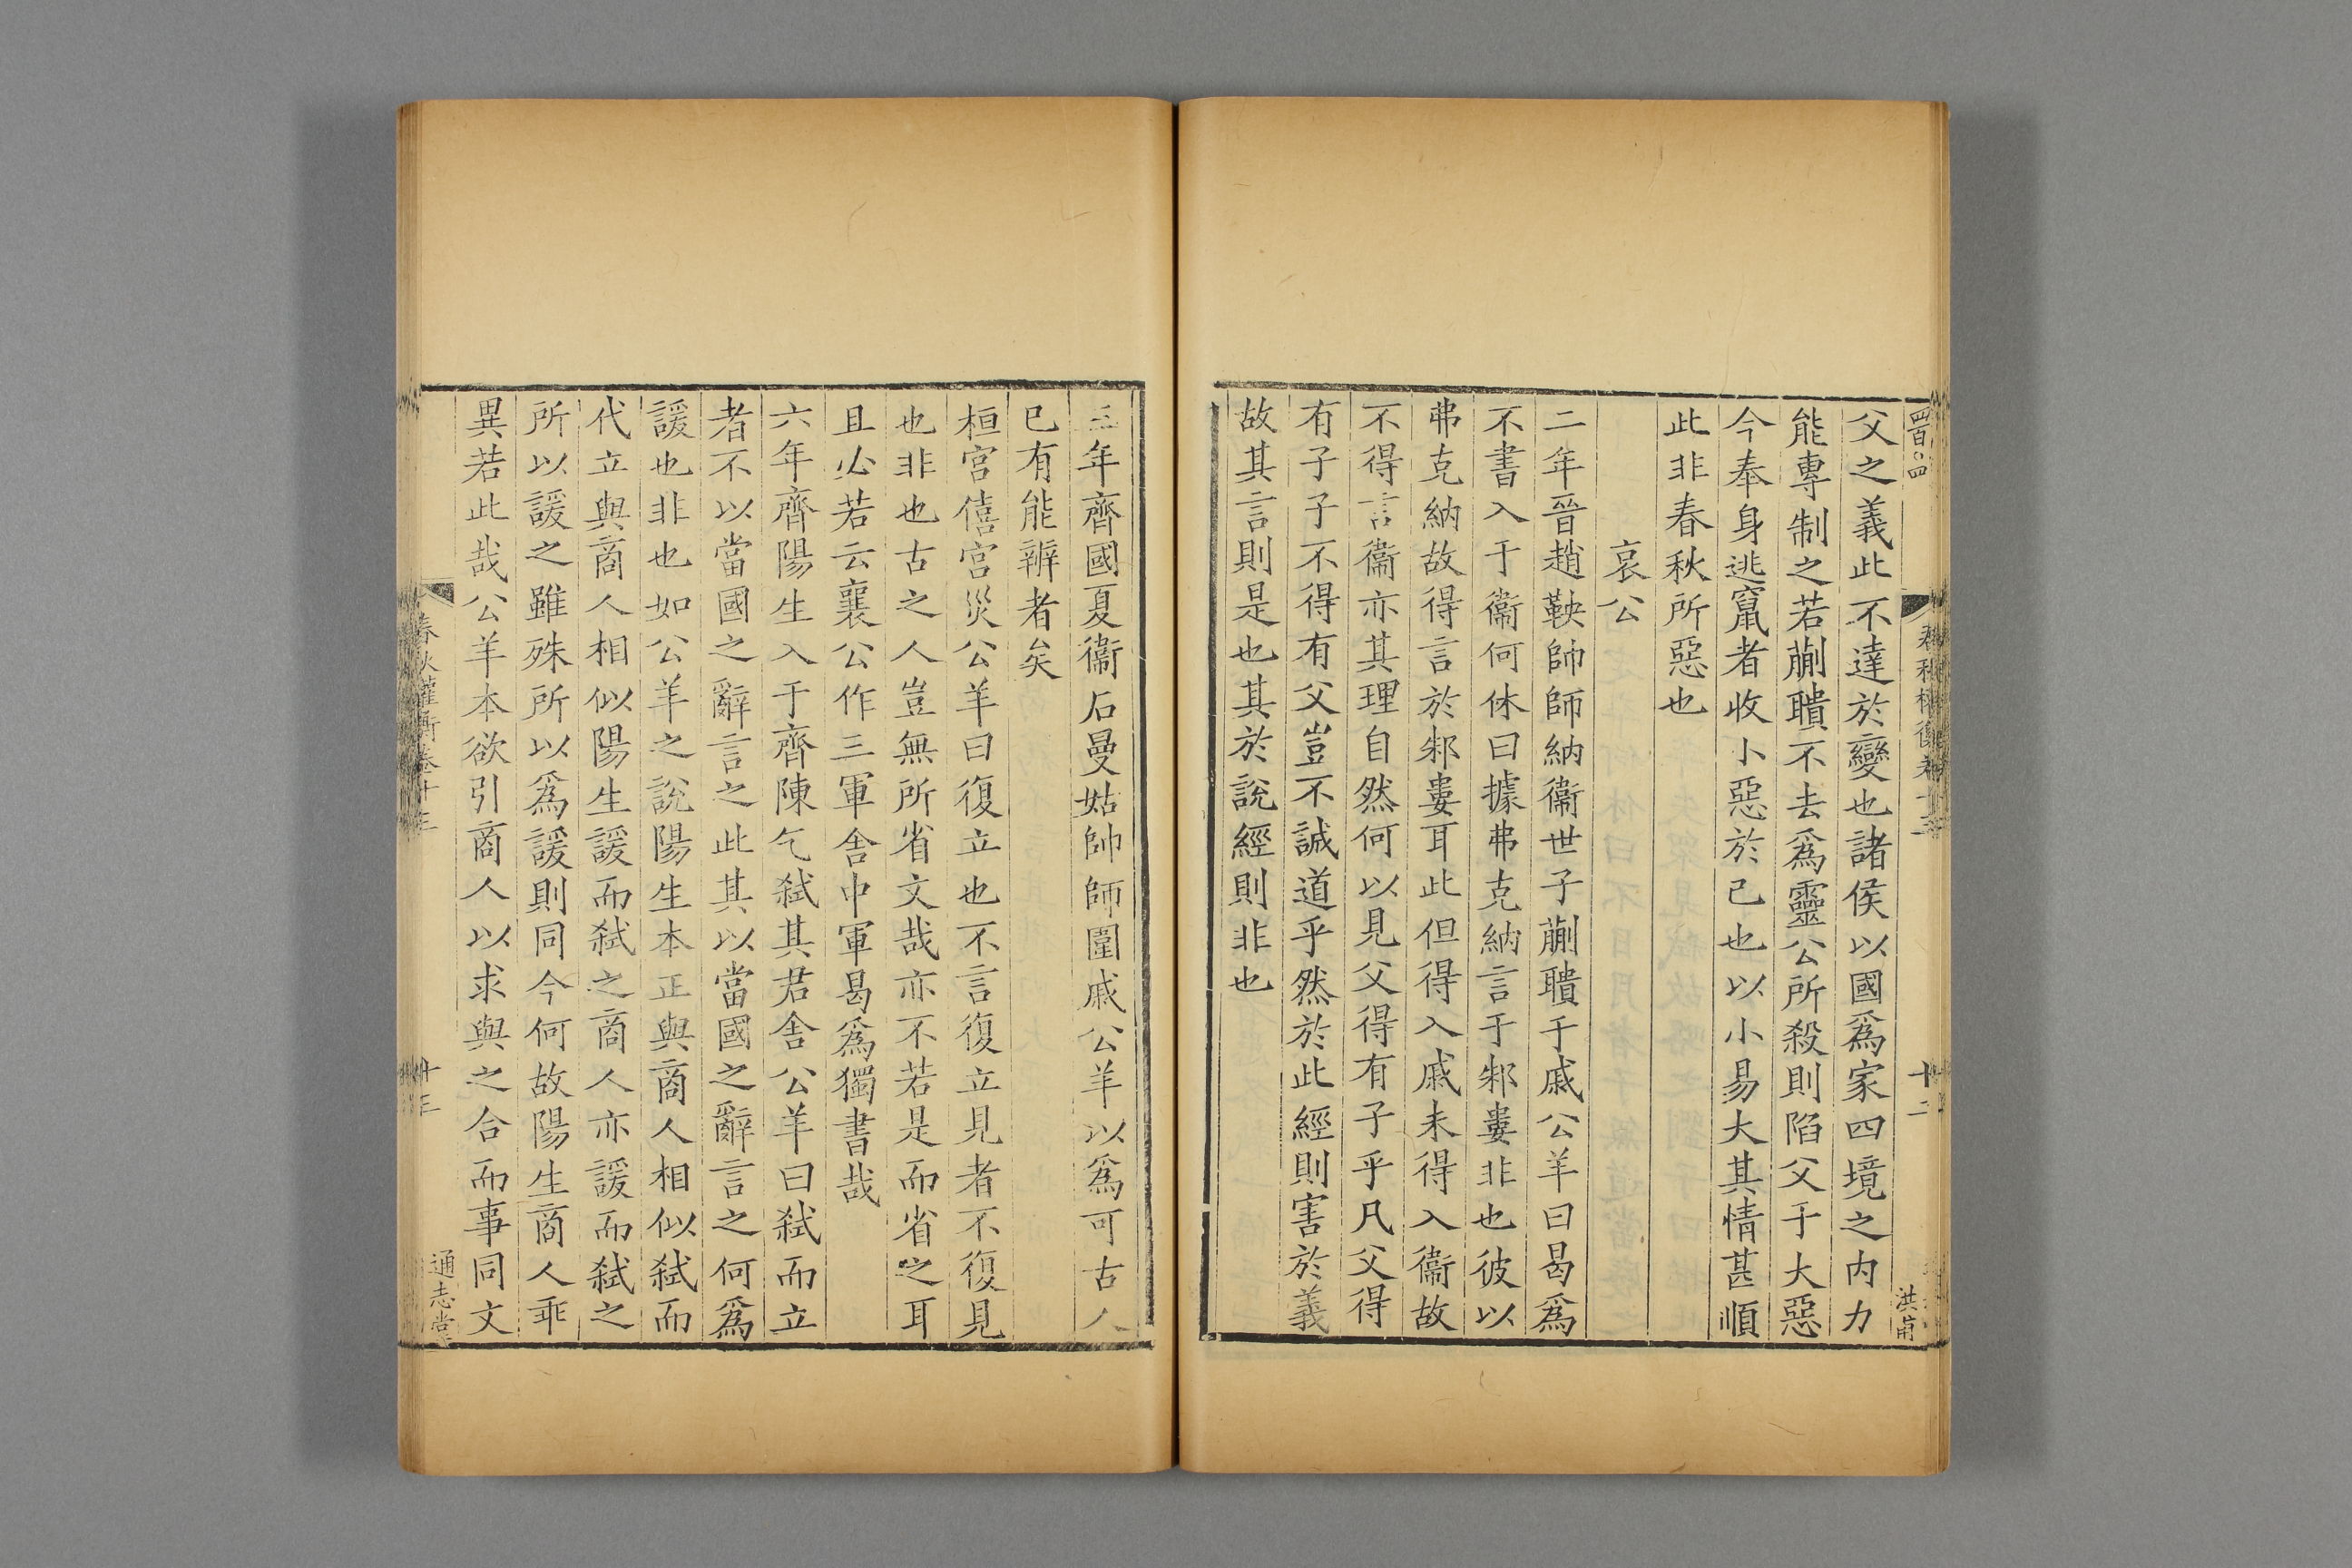 父之義此不達於變也諸侯以國爲家四境之内力
能專制之若蒯聵不去爲靈公所殺則陷父于大惡
今奉身逃竄者收小惡於己也以小易大其情甚順
此非春秋所惡也
哀公
二年晉趙鞅帥師納衞世子蒯聵于戚公羊曰曷爲
不書入于衞何休曰據弗克納言于邾婁非也彼以
弗克納故得言於邾婁耳此但得入戚未得入衞故
不得言衞亦其理自然何以見父得有子乎凡父得
有子子不得有父豈不誠道乎然於此經則害於義
故其言則是也其於說經則非也
三年齊國夏衞石曼姑帥師圍戚公羊以爲可古人
已有能辨者矣
桓宫僖宫災公羊曰復立也不言復立見者不復見
也非也古之人豈無所省文哉亦不若是而省之耳
且必若云襄公作三軍舍中軍曷爲獨書哉
六年齊陽生入于齊陳乞弑其君舍公羊曰弑而立
者不以當國之辭言之此其以當國之辭言之何爲
諼也非也如公羊之說陽生本正與商人相似弑而
代立與商人相似陽生諼而弑之商人亦諼而弑之
所以諼之雖殊所以爲諼則同今何故陽生商人乖
異若此哉公羊本欲引商人以求與之合而事同文
春秋權衡卷十三
十三
通志堂